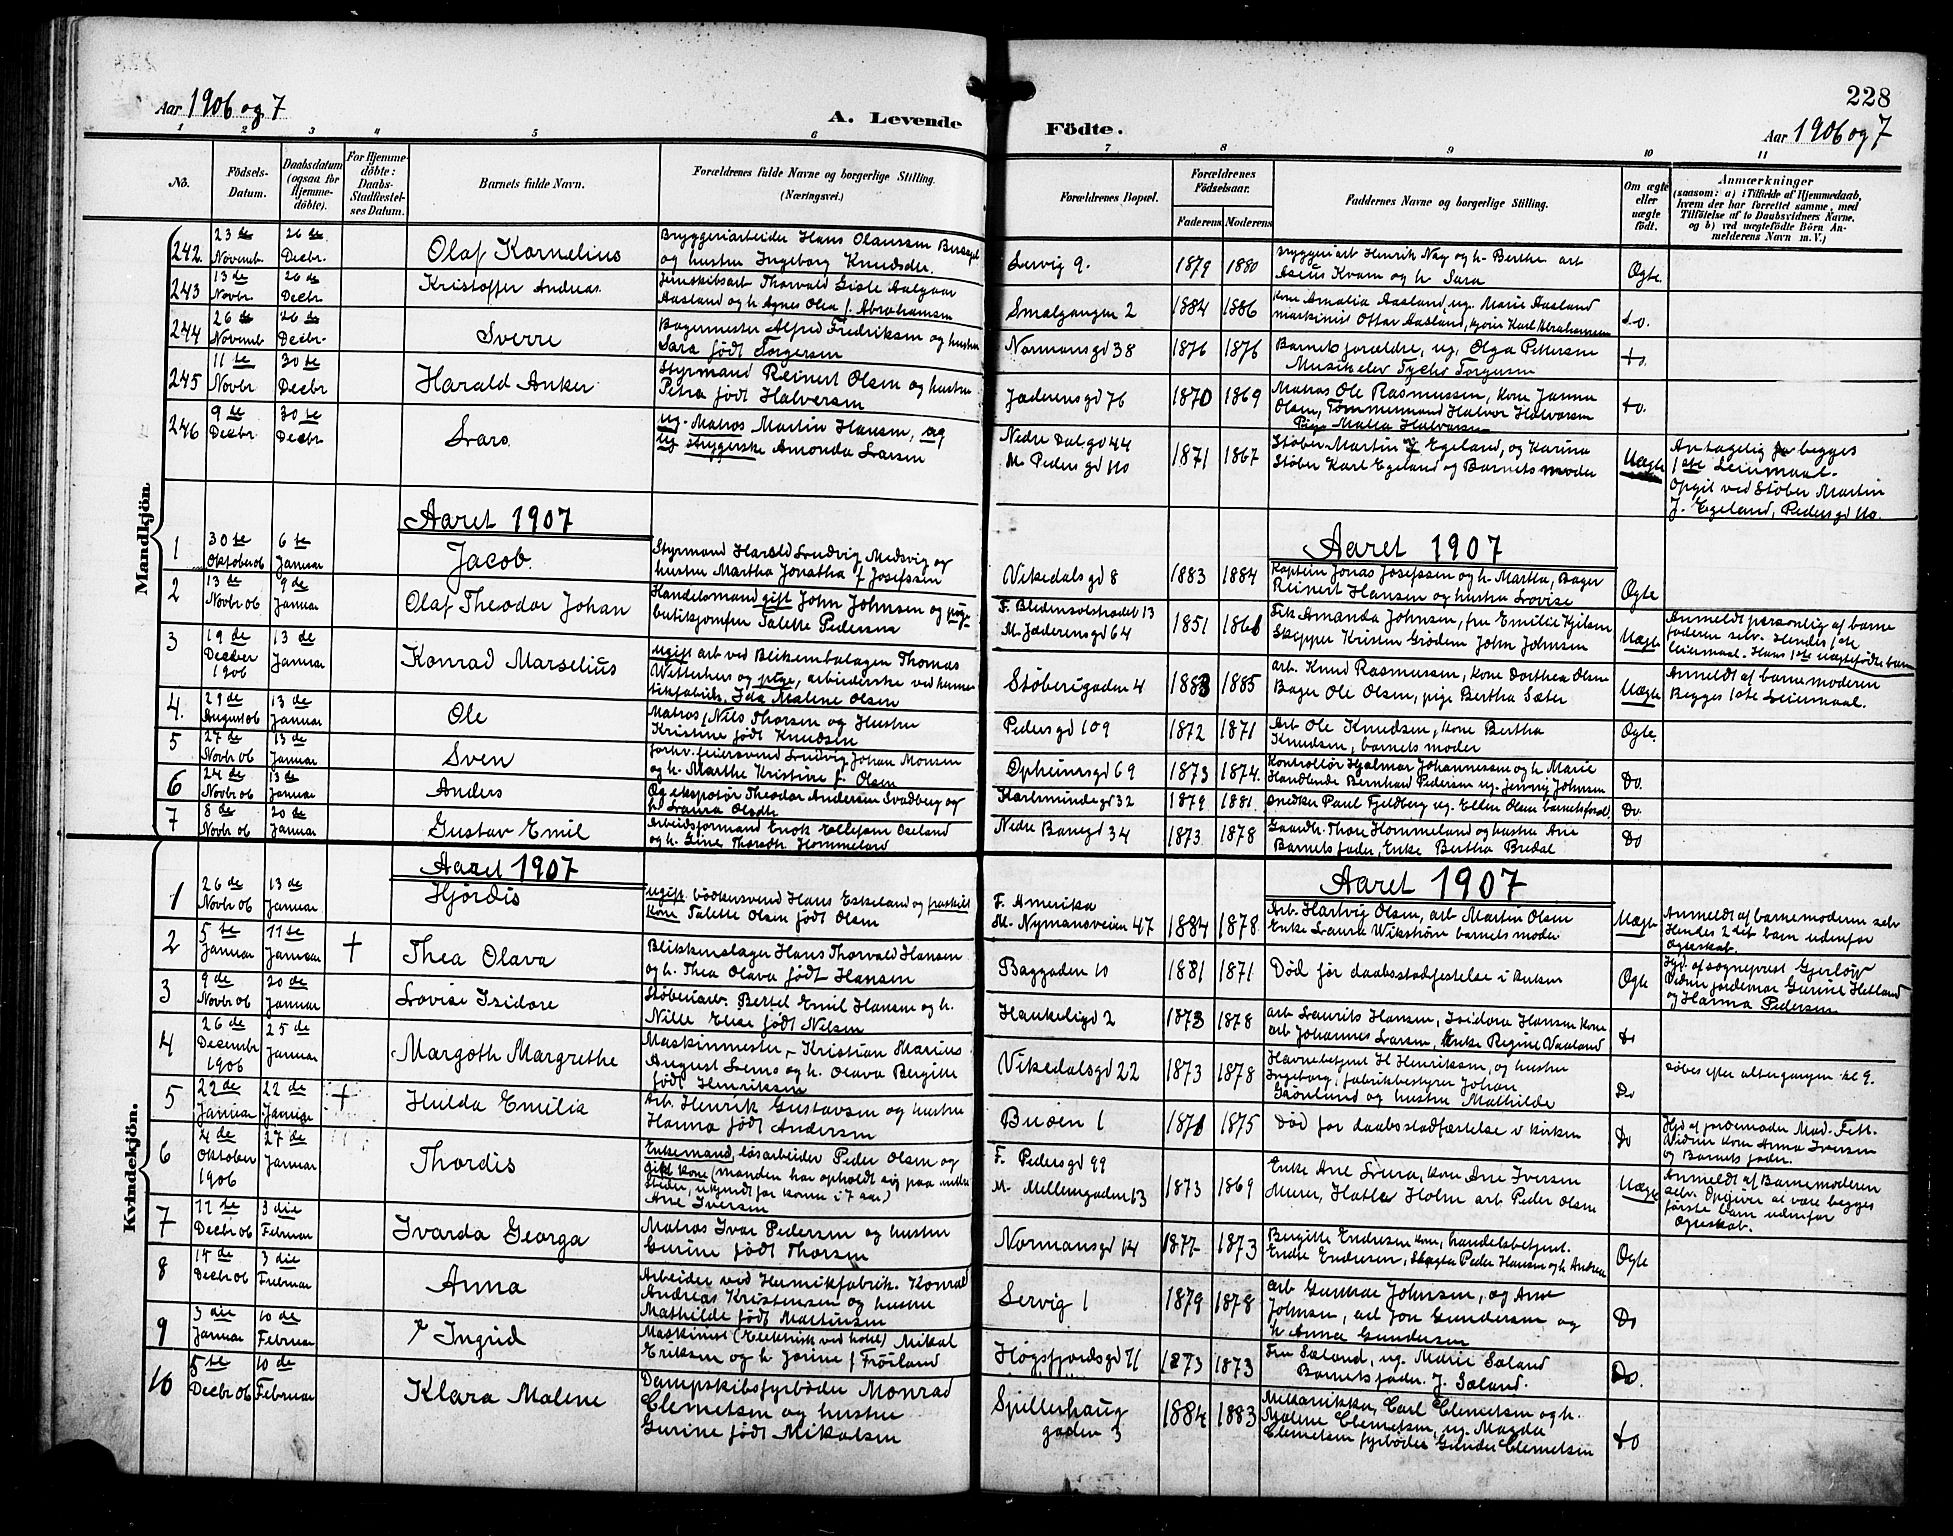 228
Aar 1906 og 7
A. Levende Födte.
Aar 1906 og 7
1 2 3 4 5 6 7 8 9 10 11
No.
Födsels-Datum.
Daabsdatum (ogsaa for Hjemme-döbte).
For Hjemme-döbte: Daabs-Stadfæstel-ses Datum.
Barnets fulde Navn.
Forældrenes fulde Navne og borgerlige Stilling. (Næringsvei.)
Forældrenes Bopæl.
Forældrenes Födselsaar.
Faderens Moderens
Faddernes Navne og borgerlige Stilling.
Om ægte eller uægte födt.
Anmærkninger
(saasom: a) i Tilfælde af Hjemmedaab, hvem der har forrettet samme, med Tilföielse af to Daabsvidners Navne. og b) ved uægtefödte Börn An-melderens Navn m. V.)
Mandkjön
242. 23de Novemb. 26de Decbr. Olaf Kornelius
Bryggeriarbeider Hans Olaussen
og hustru Ingeborg Knudsdtr.
Lervig 9. 1879 1880
Bryggeriarb Henrik Næy og h. Berthe arb
Asius Kvam og h Sara
Ægte.
243 13de Novbr 26de Decbr Kristoffer Andreas
Jernskibsarb Thorvald Gisle Aalgaar
Aasland og h Agnes Olea f. Abrahamsen
Smalgangen 2 1884 1886
Kone Amalia Aasland, ug. Marie Aasland
maskinist Ottar Aasland, Karl Abrahamsen
do.
244 26de Novemb 26de Decbr. Sverre
Bagermester Alfred Fredriksen og hustru
Sara født Torgersen
Normansgd 38 1876 1876
Barnets forældre, ug. Olga Pettersen
Musikelev Tycho Torgersen
do.
245 11te Novbr 30te Decbr Harald Anker
Styrmand Reinert Olsen og hustru
Petra født Halversen
Jæderensgd 76 1870 1869
Matros Ole Rasmussen, kone Janna
Olsen, Tømmermand Halvor Halvorsen
Pige Malla Halvorsen
do.
246 9de Decbr. 30te Decbr Lars
ug. Matros Martin Hansen, og
ug strygerske Amanda Larsen
Nedre Dalgd 44
M Pedersgd 110
1871 1867
Støber Martin Egeland, og Karina
Støber Karl Egeland og Barnets moder
Uægte
Antagelig begges
1ste Leiermaal.
Opgit ved Støber Martin
J. Egeland, Pedersgd 110.
Aaret 1907
Aaret 1907
1 30te Oktober 06 6te Januar Jacob
Styrmand Harald Ludvig Medsvig og
hustru Martha Jonatha f Josefssen
Vikedalsgd 8 1883 1884
Kaptein Jonas Josefssen og h. Martha, Bager
Reinert Hansen og hustru Lovise
Ægte
2 13de Novbr 06 9de Januar Olaf Theodor Johan
Handelsmand gift John Johnsen og pige
butikjomfru Talette Pedersen
F. Bledensolstrædet 13
M. Jæderensgd 64
1851 1861
Frk. Amanda Johnsen, fru Emilie Kjilsen
Skipper Kristen Grödem John Johnsen
Uægte
Anmeldt personlig af barne
faderen selv. Hendes 1ste
leiermaal. Hans 1ste uægtefødte barn
3 19de Decber 1906 13de Januar Konrad Marselius
ugift arb ved Blikemballagen Thomas
Witterhus og pige, arbeiderske ved herme
tikfabrik. Ida Malene Olsen
Støberigaden 4 1883 1885
arb. Knud Rasmussen, kone Dorthea Olsen
Bager Ole Olsen, pige Bertha Sæter
Uægte
Anmeldt af barnemoderen
Begges 1ste Leiermaal.
4. 29de August 06 13de Januar Ole
Matros Nils Thorsen og Hustru
Kristine født Knudsen
Pedersgd 109 1872 1871
Arb Ole Knudsen, kone Bertha
Knudsen, barnets moder
Ægte.
5 27de Novbr 06 13de Januar Sven
forhv. feiersvend Ludvig Johan Monsen
og h. Marthe Kristine f. Olsen
Opheimsgd 69 1873 1874.
Kontrollør Hjalmar Johannessen og h. Marie
Handlende Bernhard Pedersen ug. Jenny Johnsen
Do.
6 24de Novbr 06 13de Januar Anders
Og ekspotør Theodor Andersen Svadberg og
h. Laura Olsdtr
Karlsmindegd 32 1879 1881.
Snedker Paul Fjeldberg ug. Ellen Olsen barnets forældre
Do.
7 8de Novbr 06 20de Januar Gustav Emil
Arbeidsformand Enok Ellefsen Oseland
og h. Gine Thorsdtr Hommeland
Nedre Banegd 34 1873 1878
Gaardbr. Thore Hommeland og hustru Ane
Barnets fader, Enke Bertha Bredal
Do
Kvindekjön.
Aaret 1907
Aaret 1907
1 26de Novbr 06 13de Januar Hjördis
ugift bødkersvend Hans Eskeland og fraskilt
kone Talette Olsen født Olsen
F. Amerika
M. Nymansveien 47
1884 1878
Arb. Hartvig Olsen, arb Martin Olsen
Enke Laura Wikström barnets moder
Uægte
Anmeldt af barnemoderen selv
Hendes 2det barn udenfor
Ægteskab.
2 5te Januar 11te Januar + Thea Olava
Blikkenslager Hans Thorvald Hansen
og h. Thea Olava født Hansen
Baggaden 10 1881 1871
Død før daabsstadfæstelse i kirken
Ægte
Hjd af sogneprest Gjerløw
Vidner jordemor Gurine Hetland
og Hanna Pedersen
3 9de Novbr 06 20de Januar Lovise Isidore
Støberiarb. Bertel Emil Hansen og h.
Nille Elise født Nilsen
Haukeligd 2 1873 1878
arb Laurits Hansen, Isidora Hansen kone
arb Johannes Larsen, Enke Regine Vaaland
Do
4 26de Decembr 1906 25de Januar Margoth Margrethe
Maskinmester Kristian Marius
August Lerns og h. Olava Bergitte
født Henriksen
Vikedalsgd 22 1873 1878
Havnebetjent H Henriksen, og hustru
Ingeborg, fabrikbestyrer Johan
Grønlund og hustru Mathilde
Do
døbes efter altergangen kl 9.
5 22de Januar 22de Januar + Hulda Emilia
Arb. Henrik Gustavsen og hustru
Hanna født Andersen
Buøen 1 1871 1875
Død før daabsstadfæstelse i kirken
Do
Hjd af jordemoder Mad. Fett
Vidner kone Anna Iversen
og Barnets fader.
6 4de Oktober 1906 27de Januar Thordis
Enkemand, løsarbeider Peder Olsen og
gift kone (manden har opholdt sig paa andre
steder, ukjendt for konen i 7 aar)
Ane Iversen
F. Pedersgd 99
M. Mellemgaden 63
1873 1869
Enke Ane Svena, kone Ane Iversen
Murer, Hatle Holm arb Peder Olsen
Uægte
Anmeldt af Barnemoderen
selv. Opgiver at være begges
første barn udenfor
Ægteskab.
7 11te Decbr 06 3die Februar Ivarda Georga
Matros Ivar Pedersen og hustru
Gurine født Thorsen
Normansgd 14 1877 1873
Bergitte Endresen kone, handelsbetjent.
Endre Endresen, Slagter Peder Hansen og h. Andrea
Ægte
8 15de Decbr 06 3die Februar Anna
Arbeider ved Hermetikfabrik. Konrad
Andreas Kristensen og hustru
Mathilde født Martinsen
Lervig 1 1879 1878
arb Gunnar Johnsen, og Ane
Johnsen, arb Jon Gundersen og
h Anna Gundersen
Do
9 3die Januar 10de Februar Ingrid
Maskinist (Elektrisk ved hotel) Mikal
Eriksen og h Jorine f Fröiland
Høgsfjordsgd 11 1873 1873
Fru Sæland, ug. Marie Sæland
Barnets fader. J. Sæland.
Do.
10 5te Decbr 06 10de Februar Klara Malene
Dampskibsfyrbøder Monrad
Clemetsen og hustru
Gurine født Mikalsen
Spillerhaug
gaden 3
1884 1883
Mekanikker Carl Clemetsen og h.
Malene Clemetsen, ug. Magda
Clemetsen fyrbøder Gunder Clemetsen
do